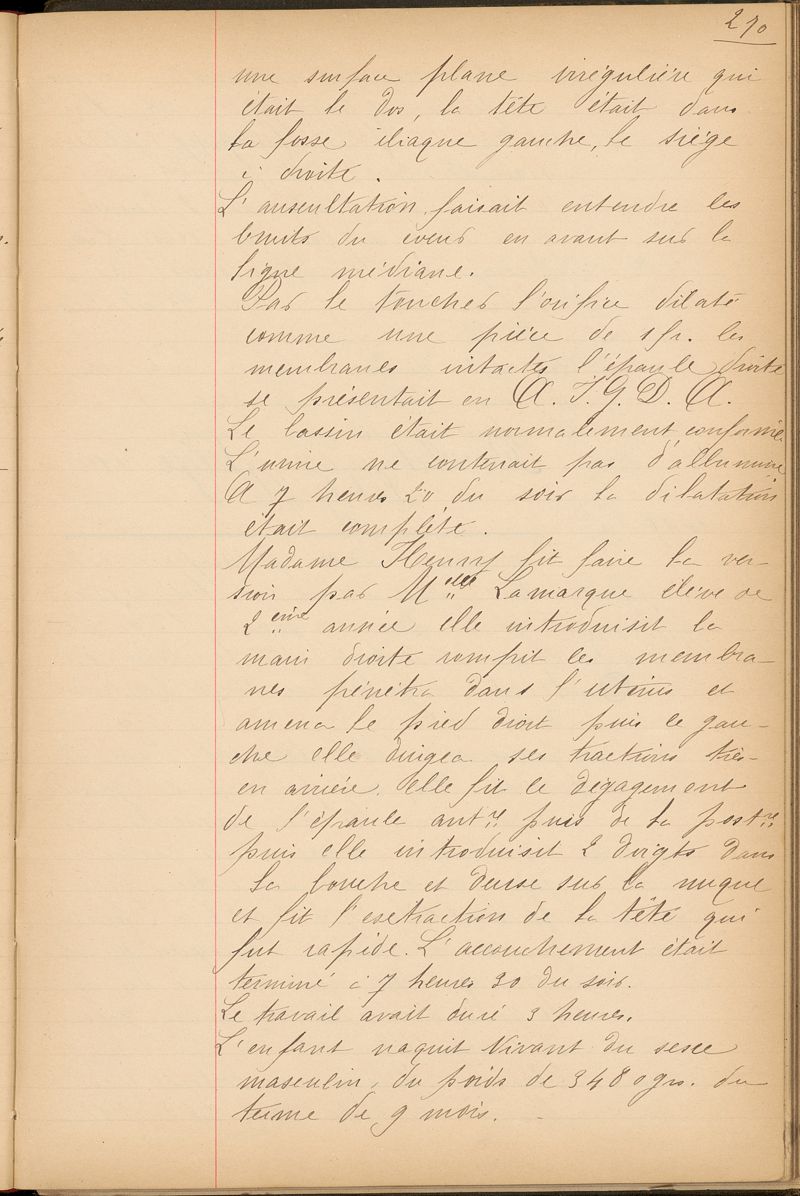 270
une surface plane irrégulière qui
était le dos, la tête était dans
la fosse iliaque gauche, le siège
à droite.
L'auscultation faisait entendre les
bruits du cœur en avant sur la
ligne médiane.
Par le toucher l'orifice dilaté
comme une pièce de 1 fr. les
membranes intactes l'épaule droite
se présentait en A. I. G. D. A.
Le bassin était normalement conformé.
L'urine ne contenait pas d'albumine
A 7 heures 20 du soir la dilatation
était complète.
Madame Henry fit faire la ver-
sion par Melle Lamarque élève de
2eme année elle introduisit la
main droite rompit les membra-
nes pénétra dans l'utérus et
amena le pied droit puis le gau-
che elle dirigea ses tractions très
en arrière. elle fit le dégagement
de l'épaule antre puis de la postre
puis elle introduisit 2 doigts dans
la bouche et deux sur la nuque
et fit l'extraction de la tête qui
fut rapide. L'accouchement était
terminé à 7 heures 30 du soir.
Le travail avait duré 3 heures.
L'enfant naquit Vivant du sexe
masculin, du poids de 3480 grs. du
terme de 9 mois.